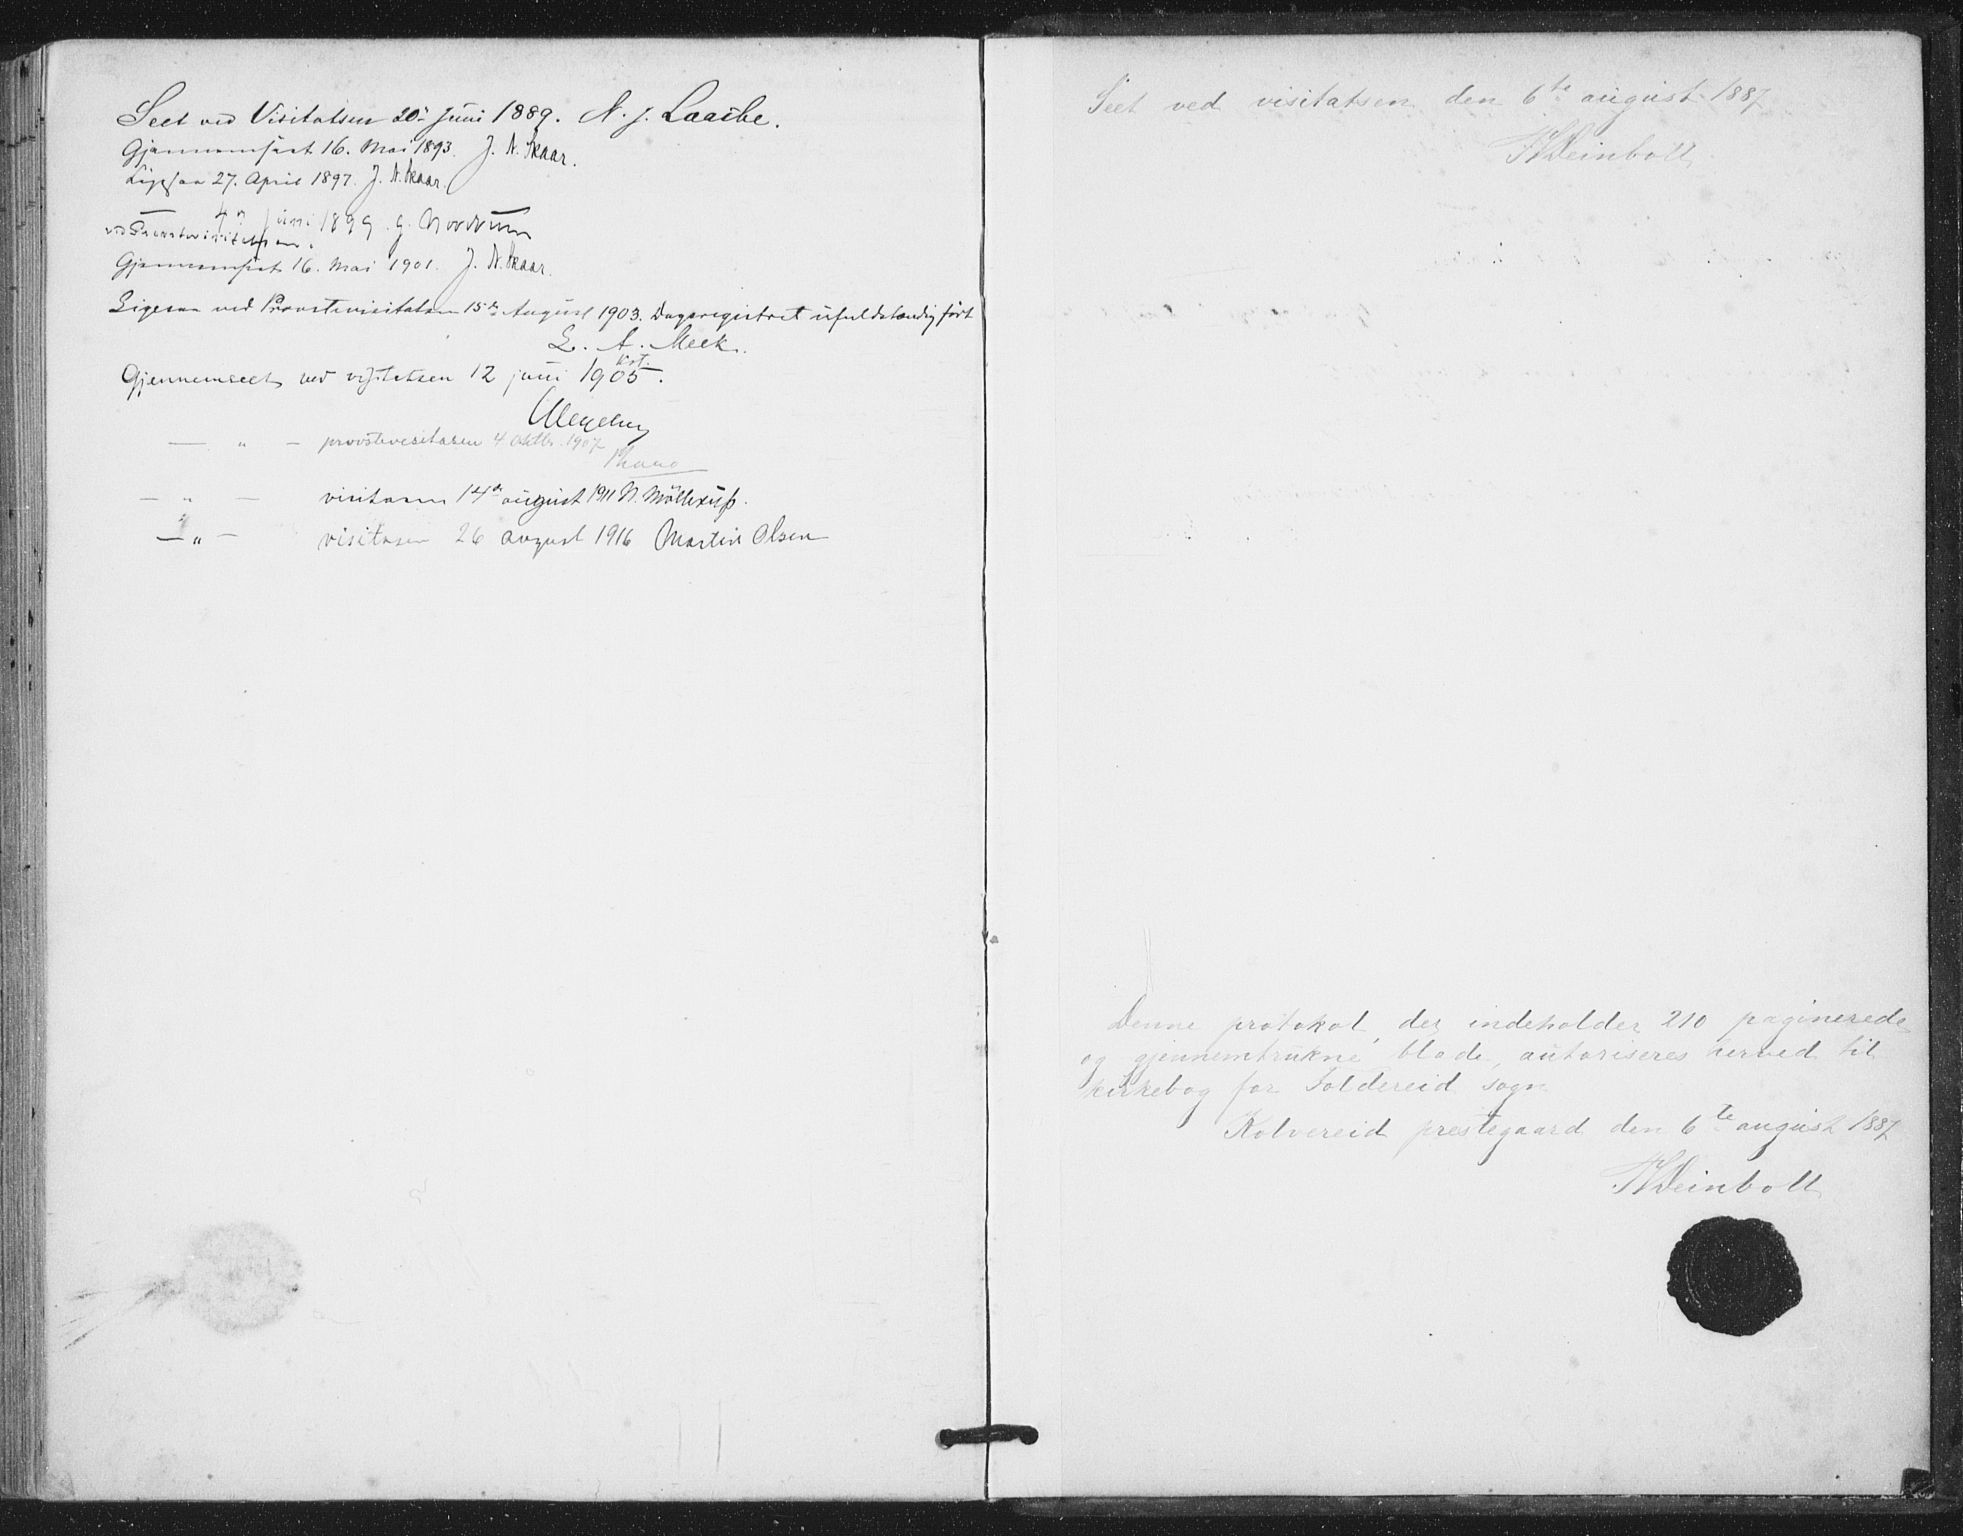 Seet ved Visitatsen 20de Juni 1889. N. J. Laache.
Gjennemseet 16. Mai 1893. J. N. Skaar.
Ligesaa 27. April 1897. J. N. Skaar.
— 4de Juni 1899. G. Nordrum
ved Provstevisitatsen.
Gjennemseet 16. Mai 1901. J. N. Skaar.
Ligesaa ved Provstevisitatsen 15de August 1903. Dagsregistret ufuldstændig ført
L. A. Meek.
kst.
Gjennemseet ved visitatsen 12 juni 1905.
Wexelsen
— " — provstevisitasen 4 oktbr. 1907
— " — visitasen 14de august 1911 N. Møllerup.
— " — visitasen 26 august 1916 Martin Olsen
Seet ved visitatsen den 6te august 1887
Deinboll
Denne protokol, der indeholder 210 paginerede
og gjennemtrukne blade, autoriseres herved til
kirkebog for Foldereid sogn
Kolvereid prestegaard den 6te august 1887
Deinboll